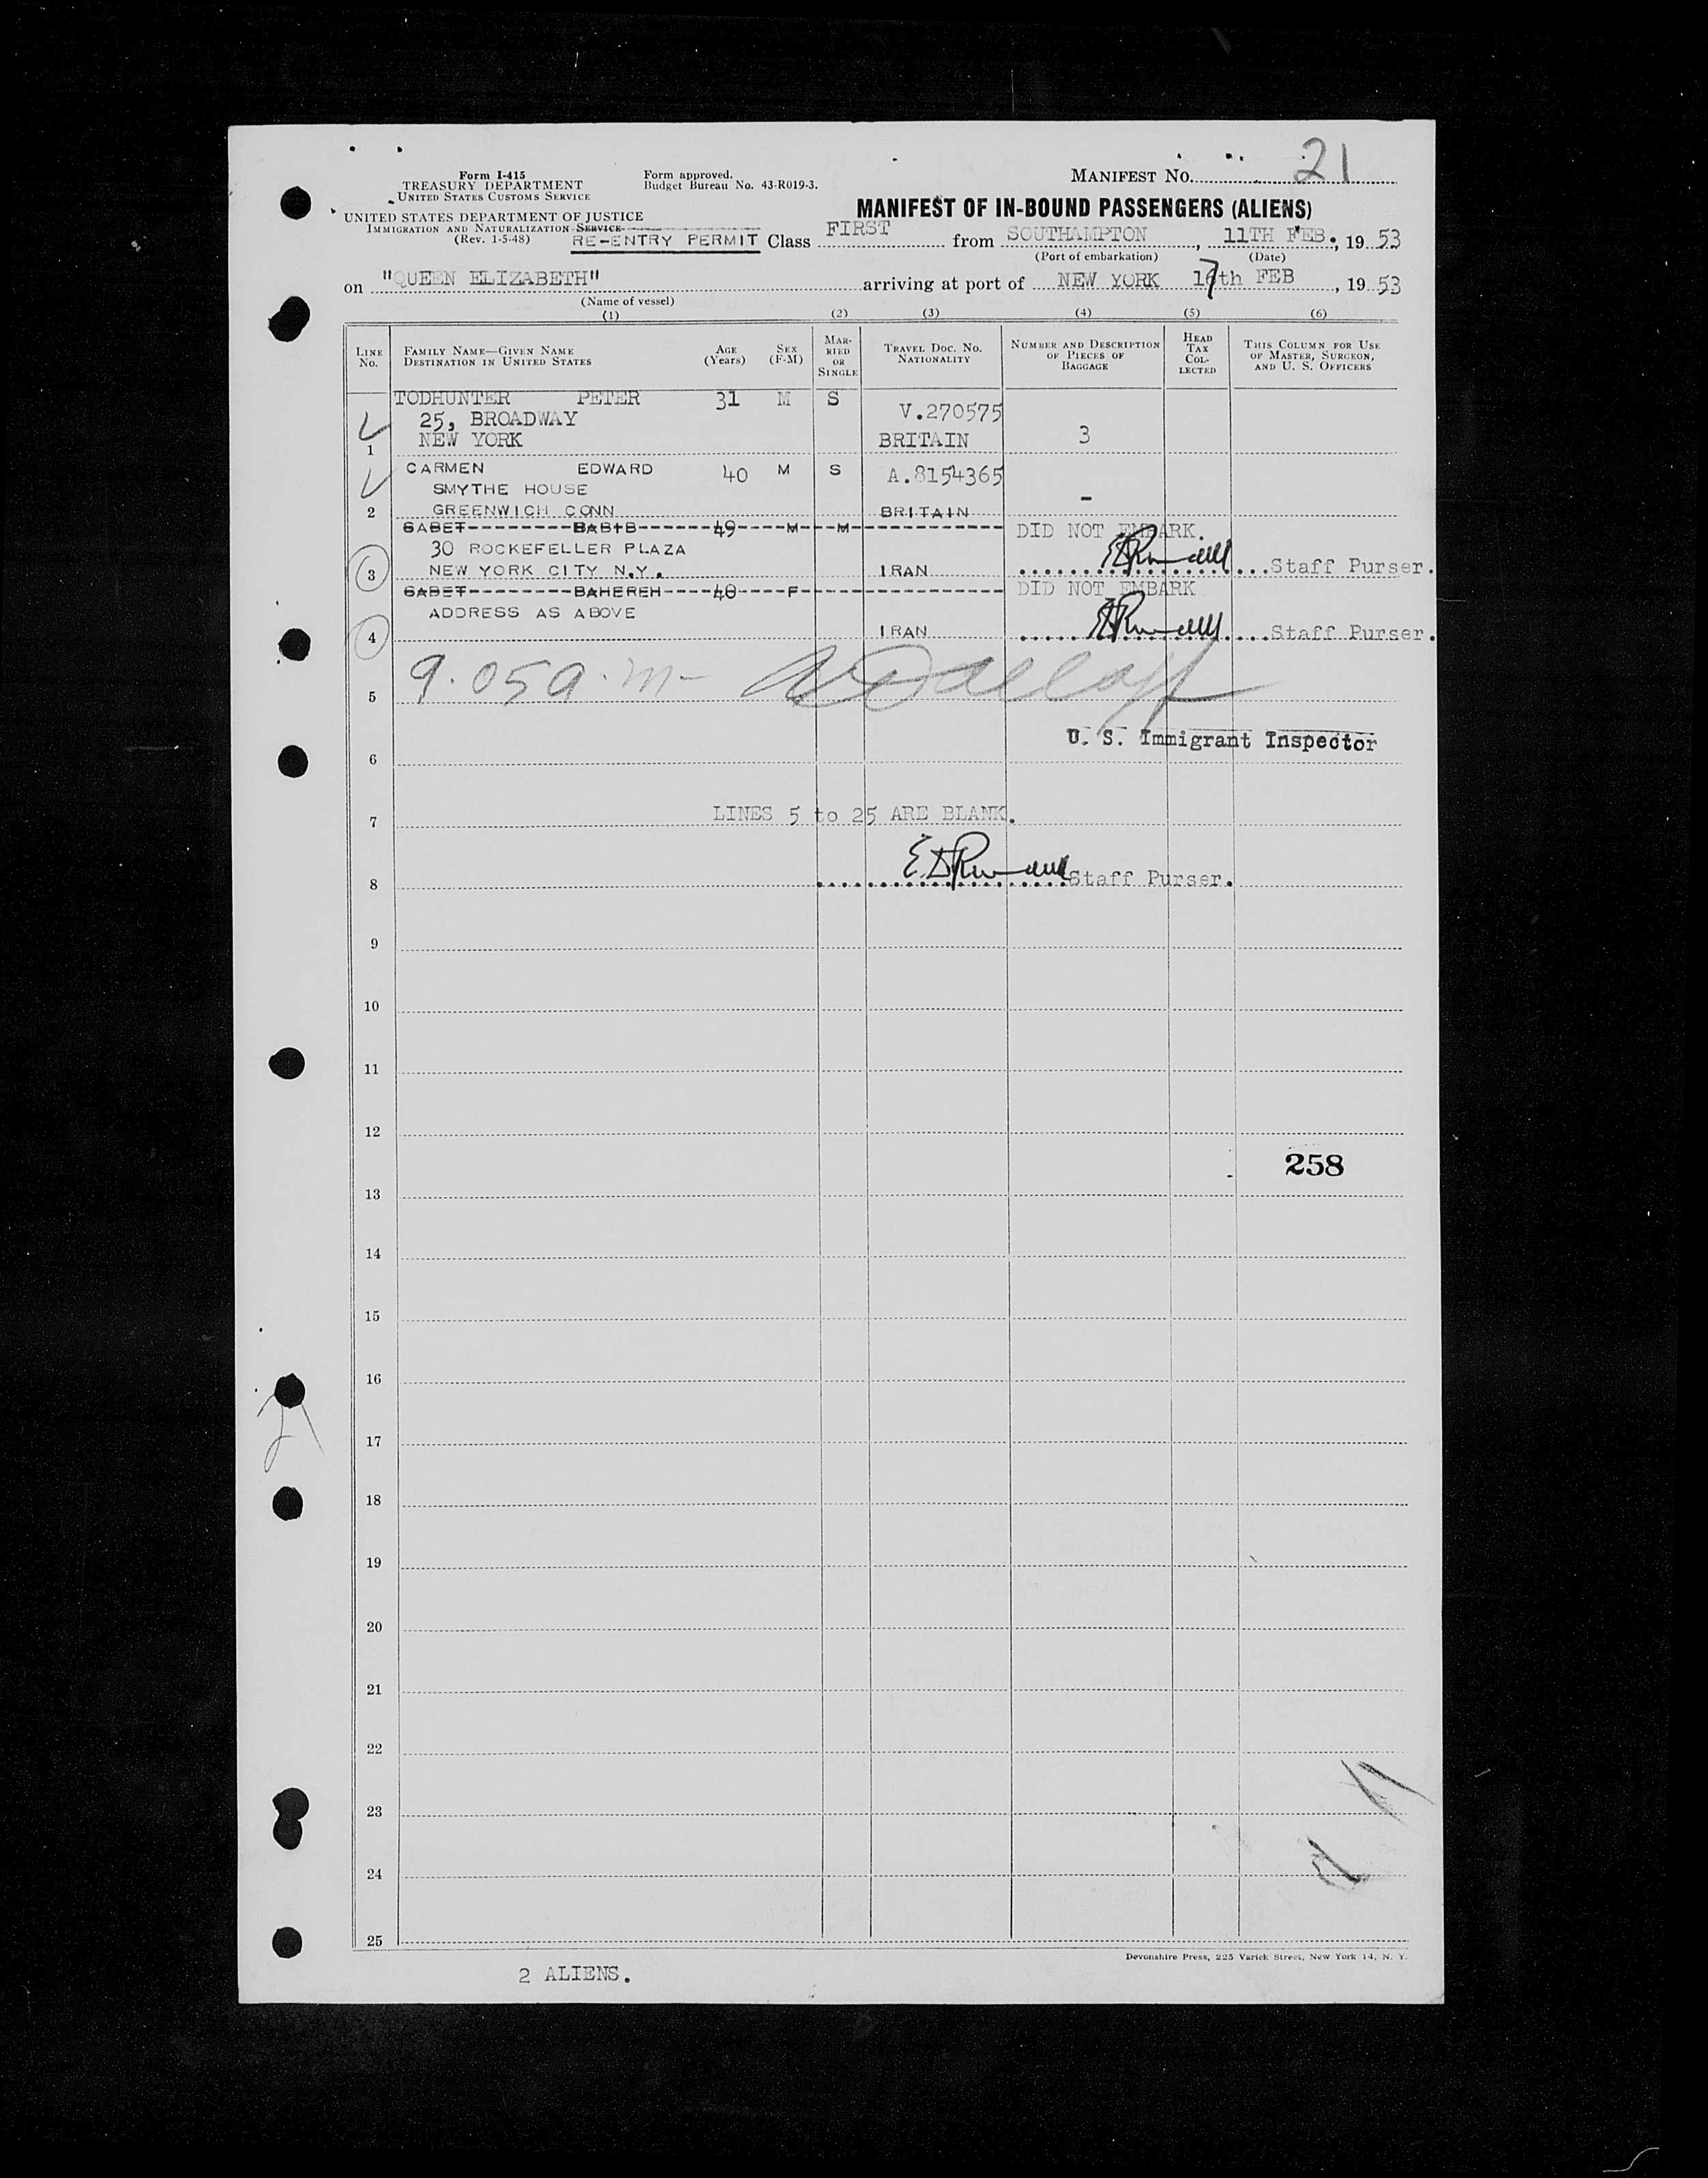 MANIFEST No. 21
Form I-415
TREASURY DEPARTMENT
UNITED STATES CUSTOMS SERVICE
Form approved.
Budget Bureau No. 43-R019-3.
UNITED STATES DEPARTMENT OF JUSTICE
IMMIGRATION AND NATURALIZATION SERVICE
(Rev. 1-5-48)
MANIFEST OF IN-BOUND PASSENGERS (ALIENS)
RE-ENTRY PERMIT Class FIRST from SOUTHAMPTON, 11TH FEB., 19 53
(Port of embarkation) (Date)
on "QUEEN ELIZABETH" arriving at port of NEW YORK 17th FEB, 19 53
(Name of vessel)
(1) (2) (3) (4) (5) (6)
LINE No. FAMILY NAME—GIVEN NAME DESTINATION IN UNITED STATES AGE (Years) SEX (F-M) MARRIED OR SINGLE TRAVEL DOC. NO. NATIONALITY NUMBER AND DESCRIPTION OF PIECES OF BAGGAGE HEAD TAX COLLECTED THIS COLUMN FOR USE OF MASTER, SURGEON, AND U. S. OFFICERS
TODHUNTER PETER 31 M S
25, BROADWAY V.270575
NEW YORK BRITAIN 3
1
CARMEN EDWARD 40 M S A.8154365
SMYTHE HOUSE
2 GREENWICH CONN BRITAIN -
SABET BABIB 49 M M DID NOT EMBARK.
30 ROCKEFELLER PLAZA
3 NEW YORK CITY N.Y. IRAN Staff Purser.
SABET BAHEREH 40 F DID NOT EMBARK
ADDRESS AS ABOVE
4 IRAN Staff Purser.
9.05 a.m-
5
U. S. Immigrant Inspector
6
LINES 5 to 25 ARE BLANK.
7
8 Staff Purser.
9
10
11
12
258
13
14
15
16
17
18
19
20
21
22
23
24
25
Devonshire Press, 225 Varick Street, New York 14, N. Y.
2 ALIENS.